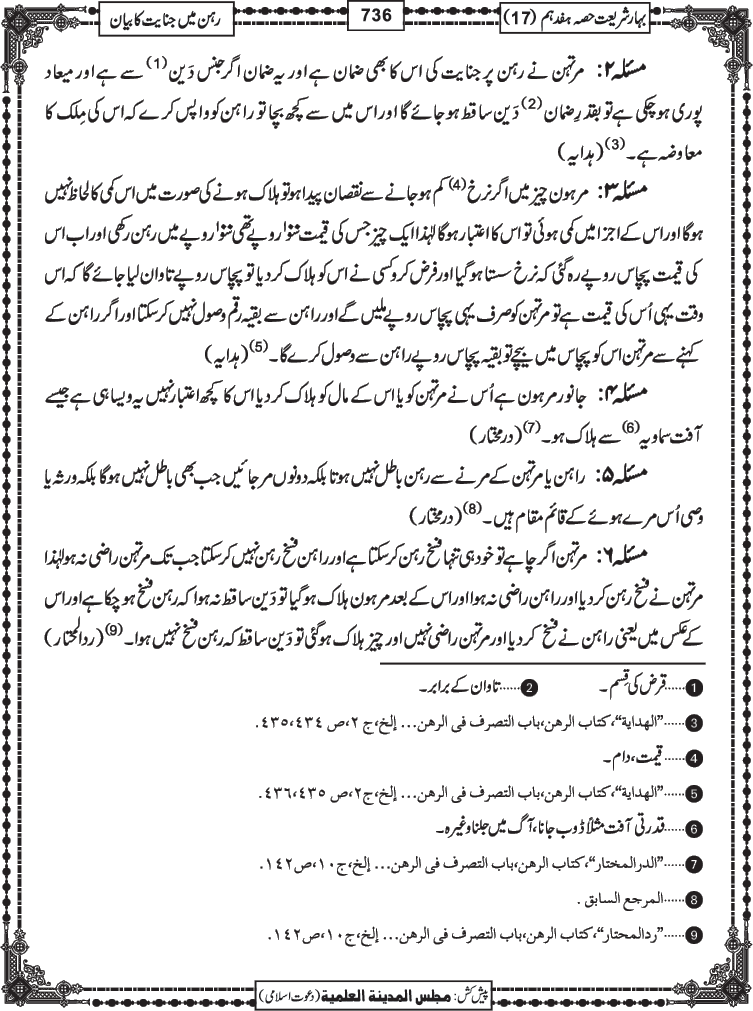 بہار شریعت حصہ ہفدہم (17)
736
رہن میں جنایت کا بیان
مسئلہ ۲: مرتہن نے رہن پر جنایت کی اس کا بھی ضمان ہے اور یہ ضمان اگر جنس دَین (1) سے ہے اور میعاد
پوری ہو چکی ہے تو بقدرِ ضمان (2) دَین ساقط ہو جائے گا اور اس میں سے کچھ بچا تو راہن کو واپس کرے کہ اس کی مِلک کا
معاوضہ ہے۔ (3) (ہدایہ)
مسئلہ ۳: مرہون چیز میں اگر نرخ (4) کم ہو جانے سے نقصان پیدا ہو تو ہلاک ہونے کی صورت میں اس کمی کا لحاظ نہیں
ہوگا اور اس کے اجزا میں کمی ہوئی تو اس کا اعتبار ہوگا لہٰذا ایک چیز جس کی قیمت سَو روپے تھی سَو روپے میں رہن رکھی اور اب اس
کی قیمت پچاس روپے رہ گئی کہ نرخ سستا ہوگیا اور فرض کرو کسی نے اس کو ہلاک کر دیا تو پچاس روپے تاوان لیا جائے گا کہ اس
وقت یہی اُس کی قیمت ہے تو مرتہن کو صرف یہی پچاس روپے ملیں گے اور راہن سے بقیہ رقم وصول نہیں کر سکتا اور اگر راہن کے
کہنے سے مرتہن اس کو پچاس میں بیچے تو بقیہ پچاس روپے راہن سے وصول کرے گا۔ (5) (ہدایہ)
مسئلہ ۴: جانور مرہون ہے اُس نے مرتہن کو یا اس کے مال کو ہلاک کر دیا اس کا کچھ اعتبار نہیں یہ ویسا ہی ہے جیسے
آفت سماویہ (6) سے ہلاک ہو۔ (7) (درمختار)
مسئلہ ۵: راہن یا مرتہن کے مرنے سے رہن باطل نہیں ہوتا بلکہ دونوں مر جائیں جب بھی باطل نہیں ہوگا بلکہ ورثہ یا
وصی اُس مرے ہوئے کے قائم مقام ہیں۔ (8) (درمختار)
مسئلہ ۶: مرتہن اگر چاہے تو خود ہی تنہا فسخِ رہن کر سکتا ہے اور راہن فسخِ رہن نہیں کر سکتا جب تک مرتہن راضی نہ ہو لہٰذا
مرتہن نے فسخِ رہن کر دیا اور راہن راضی نہ ہوا اور اس کے بعد مرہون ہلاک ہوگیا تو دَین ساقط نہ ہوا کہ رہن فسخ ہو چکا ہے اور اس
کے عکس میں یعنی راہن نے فسخ کر دیا اور مرتہن راضی نہیں اور چیز ہلاک ہوگئی تو دَین ساقط کہ رہن فسخ نہیں ہوا۔ (9) (ردالمحتار)
1 ……قرض کی قِسم۔ 2 ……تاوان کے برابر۔
3 ……”الهداية“،كتاب الرهن،باب التصرف فى الرهن... إلخ،ج ٢،ص ٤٣٤،٤٣٥.
4 ……قیمت،دام۔
5 ……”الهداية“،كتاب الرهن،باب التصرف فى الرهن... إلخ،ج٢،ص ٤٣٥،٤٣٦.
6 ……قدرتی آفت مثلاً ڈوب جانا،آگ میں جلنا وغیرہ۔
7 ……”الدرالمختار“،كتاب الرهن،باب التصرف فى الرهن... إلخ،ج١٠،ص١٤٢.
8 ……المرجع السابق .
9 ……”ردالمحتار“،كتاب الرهن،باب التصرف فى الرهن... إلخ،ج١٠،ص١٤٢.
پیش کش: مجلس المدينة العلمية (دعوت اسلامی)